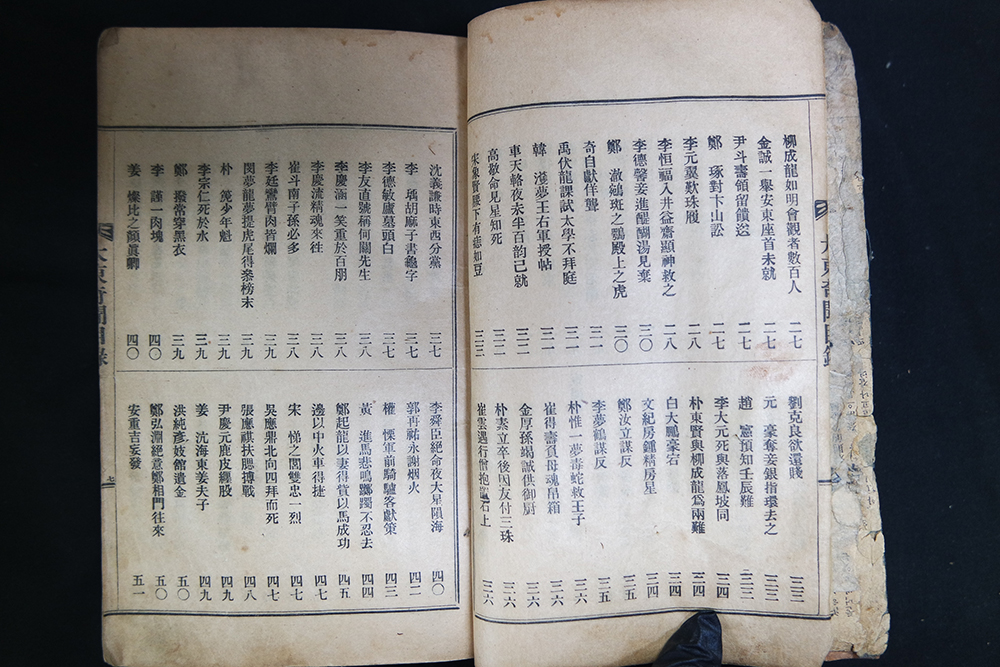 柳成龍如明會觀者數百人 二七
金誠一擧安東座首未就 二七
尹斗壽領留饋盜 二七
鄭 琢對卞山訟 二七
李元翼歎珠履 二八
李恒福入井益齋顯神救之 二八
李德馨妾進醍醐湯見棄 三〇
鄭 澈鵷班之鶚殿上之虎 三〇
奇自獻佯聾 三一
禹伏龍課試太學不拜庭 三一
韓 濩夢王右軍授帖 三一
車天輅夜未半百韵已就 三二
高敬命見星知死 三二
宋象賢腰下有痣如豆 三三
劉克良欲還賤 三三
元 豪奪妾銀指環去之 三三
趙 憲預知壬辰難 三三
李大元死與落鳳坡同 三四
朴東賢與柳成龍爲兩難 三四
白大鵬豪右 三四
文紀房鍾精房星 三四
鄭汝立謀反 三五
李夢鶴謀反 三五
朴惟一夢毒蛇救王子 三六
崔得壽負母魂帛箱 三六
金厚孫竭誠供御厨 三六
朴素立卒後因友付三珠 三六
崔雲遇行僧抱置石上 三六
沈義謙時東西分黨 三七
李 瑀胡麻子書龜字 三七
李德敏廬墓頭白 三七
李友直號稱何關先生 三八
李慶涵一笑重於百朋 三八
李慶流精魂來往 三八
崔斗南子孫必多 三八
李廷鸞臂肉皆爛 三九
閔夢龍夢提虎尾得參榜末 三九
朴 箎少年魁 三九
李宗仁死於水 三九
鄭 撥常穿黑衣 三九
李 謹一肉塊 四〇
姜 燦比之顔眞卿 四〇
李舜臣絕命夜大星隕海 四〇
郭再祐永謝烟火 四二
權 慄軍前騎驢客獻策 四三
黃 進馬悲鳴躑躅不忍去 四四
鄭起龍以妻得貲以馬成功 四五
邊以中火車得捷 四七
宋 悌之閭雙忠一烈 四七
吳應鼎北向四拜而死 四七
張應麒扶聰搏戰 四八
尹慶元鹿皮纒股 四九
姜 沆海東姜夫子 四九
洪純彥妓館遺金 五〇
鄭弘淵絕意鄭相門往來 五〇
安重吉妄發 五一
大東奇聞目錄
大東奇聞目錄